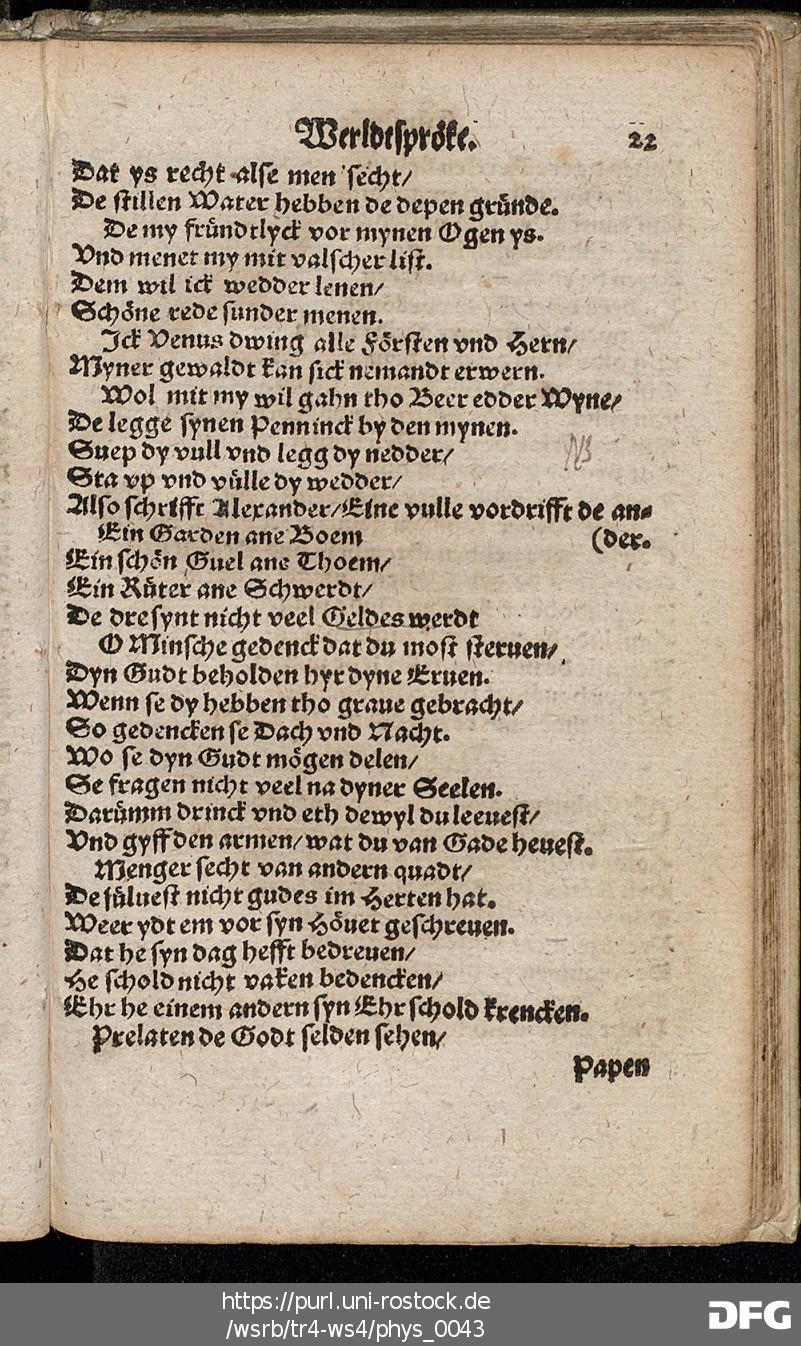 Werldtspröke. 22
Dat ys recht alse men secht/
De stillen Water hebben de depen gründe.
De my fründtlyck vor mynen Ogen ys.
Vnd menet my mit valscher list.
Dem wil ick wedder lenen/
Schöne rede sunder menen.
Ick Venus dwing alle Försten vnd Hern/
Myner gewaldt kan sick nemandt erwern.
Wol mit my wil gahn tho Beer edder Wyne/
De legge synen Penninck by den mynen.
Suep dy vull vnd legg dy nedder/
Sta vp vnd vülle dy wedder/
Also schrifft Alexander/Eine vulle vordrifft de an-
Ein Garden ane Boem (der.
Ein schön Guel ane Thoem/
Ein Rüter ane Schwerdt/
De dre synt nicht veel Geldes werdt
O Minsche gedenck dat du most steruen/
Dyn Gudt beholden hyr dyne Eruen.
Wenn se dy hebben tho graue gebracht/
So gedencken se Dach vnd Nacht.
Wo se dyn Gudt mögen delen/
Se fragen nicht veel na dyner Seelen.
Darümm drinck vnd eth dewyl du leeuest/
Vnd gyff den armen/wat du van Gade heuest.
Menger secht van andern quadt/
De süluest nicht gudes im Herten hat.
Weer ydt em vor syn Höuet geschreuen.
Dat he syn dag hefft bedreuen/
He schold nicht vaken bedencken/
Ehr he einem andern syn Ehr schold krencken.
Prelaten de Godt selden sehen/
Papen
NB
https://purl.uni-rostock.de
/wsrb/tr4-ws4/phys_0043
DFG